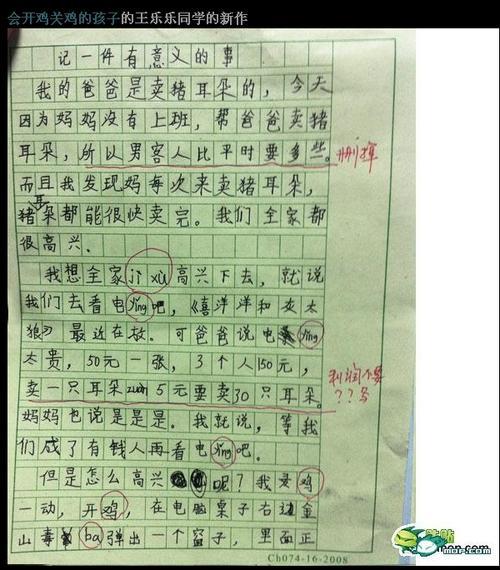 会开鸡关鸡的孩子的王乐乐同学的新作
记一件有意义的事
我的爸爸是卖猪耳朵的，今天
因为妈妈没有上班，帮爸爸卖猪
耳朵，所以男客人比平时要多些。
删掉
而且我发现妈每次来卖猪耳朵，
猪耳朵都能很快卖完。我们全家都
很高兴．
我想全家jì xù高兴下去，就说
我们去看电yǐng吧，《喜洋洋和灰太
狼》最近在放．可爸爸说电yǐng
太贵，50元一张，3个人150元，
卖一只耳朵zuàn5元要卖30只耳朵。
利润不要
？？写
妈妈也说是是是．我就说，等我
们成了有钱人再看电yǐng吧．
但是怎么高兴呢？我灵鸡
一动，开鸡，在电脑桌子右边金
山毒ba弹出一个窗子，里面正
Ch074-16-2008